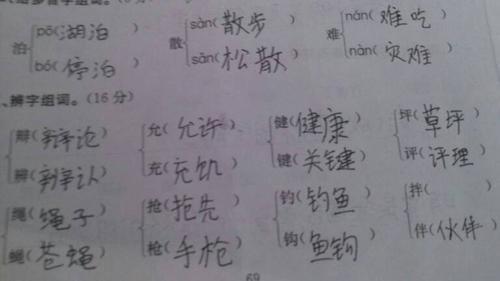 多音字组词。(
pō(湖泊) sàn(散步) nán(难吃)
泊 散 难
bó(停泊) sǎn(松散) nàn(灾难)
、辨字组词。(16分)
辩(辩论) 允(允许) 健(健康) 坪(草坪)
辨(辨认) 充(充饥) 键(关键) 评(评理)
绳(绳子) 抢(抢先) 钓(钓鱼) 拌( )
蝇(苍蝇) 枪(手枪) 钩(鱼钩) 伴(伙伴)
69